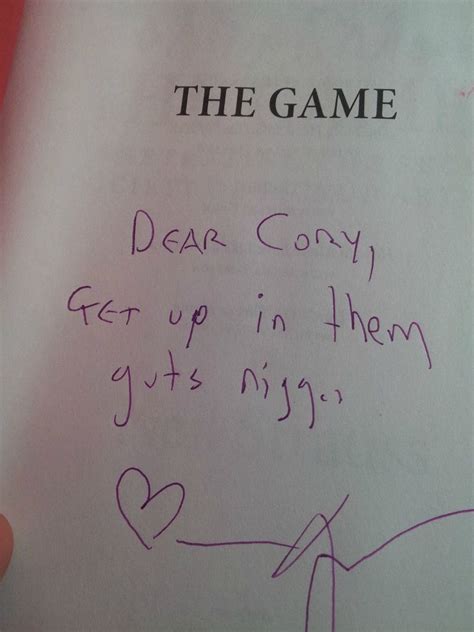 THE GAME
DEAR CORY,
GET UP in them
guts nigga